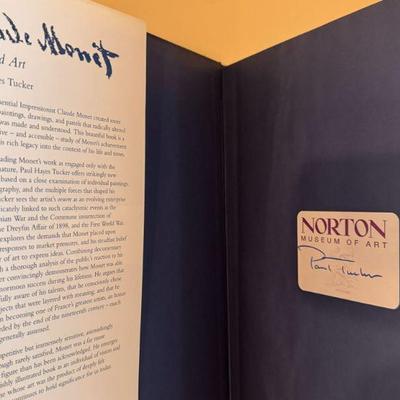 aude Monet
d Art
es Tucker
ential Impressionist Claude Monet created some
paintings, drawings, and pastels that radically altered
was made and understood. This beautiful book is a
ive – and accessible – study of Monet's achievements
his rich legacy into the context of his life and times.
ading Monet's work as engaged only with the
nature, Paul Hayes Tucker offers strikingly new
based on a close examination of individual paintings,
graphy, and the multiple forces that shaped his
Tucker sees the artist's oeuvre as an evolving enterprise
icately linked to such cataclysmic events as the
sian War and the Commune insurrection of
he Dreyfus Affair of 1898, and the First World War.
explores the demands that Monet placed upon
responses to market pressures, and his steadfast belief
y of art to express ideas. Combining documentary
h a thorough analysis of the public's reaction to his
er convincingly demonstrates how Monet was able
normous success during his lifetime. He argues that
ully aware of his talents, that he consciously chose
jects that were layered with meaning, and that he
n becoming one of France's greatest artists, an honor
rded by the end of the nineteenth century – much
generally assumed.
mperative but immensely sensitive, astoundingly
ough rarely satisfied, Monet was a far more
figure than has been acknowledged. He emerges
ishly illustrated book as an individual of vision and
ne whose art was the product of deeply felt
continues to hold significance for us today.
NORTON
MUSEUM OF ART
Paul Tucker